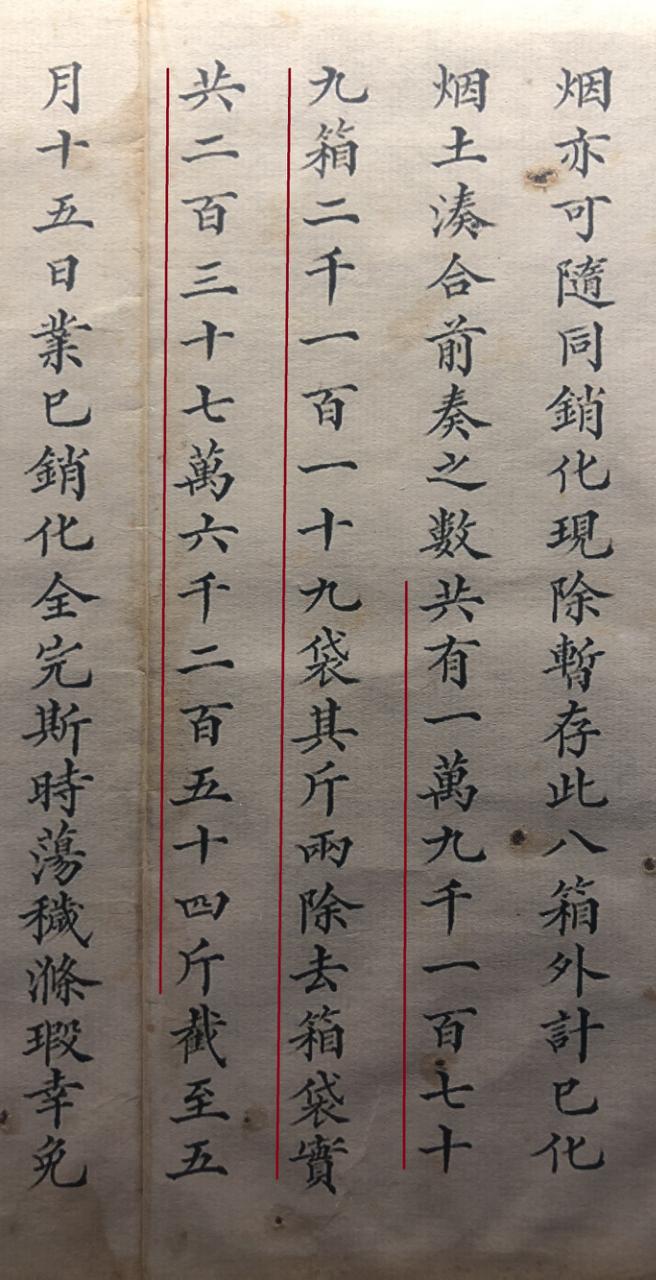 烟亦可隨同銷化現除暫存此八箱外計巳化
烟土湊合前奏之數共有一萬九千一百七十
九箱二千一百一十九袋其斤兩除去箱袋實
共二百三十七萬六千二百五十四斤截至五
月十五日業巳銷化全完斯時蕩穢滌瑕幸免